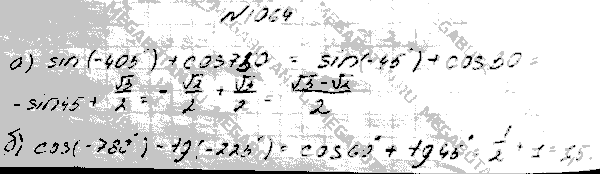 №1064
а) sin(-405°) + cos780 = sin(-45°) + cos30 =
-sin45 + √3/2 = -√2/2 + √3/2 = √3-√2/2
б) cos(-780°) - tg(-225°) = cos60° + tg45° = 1/2 + 1 = 1,5.